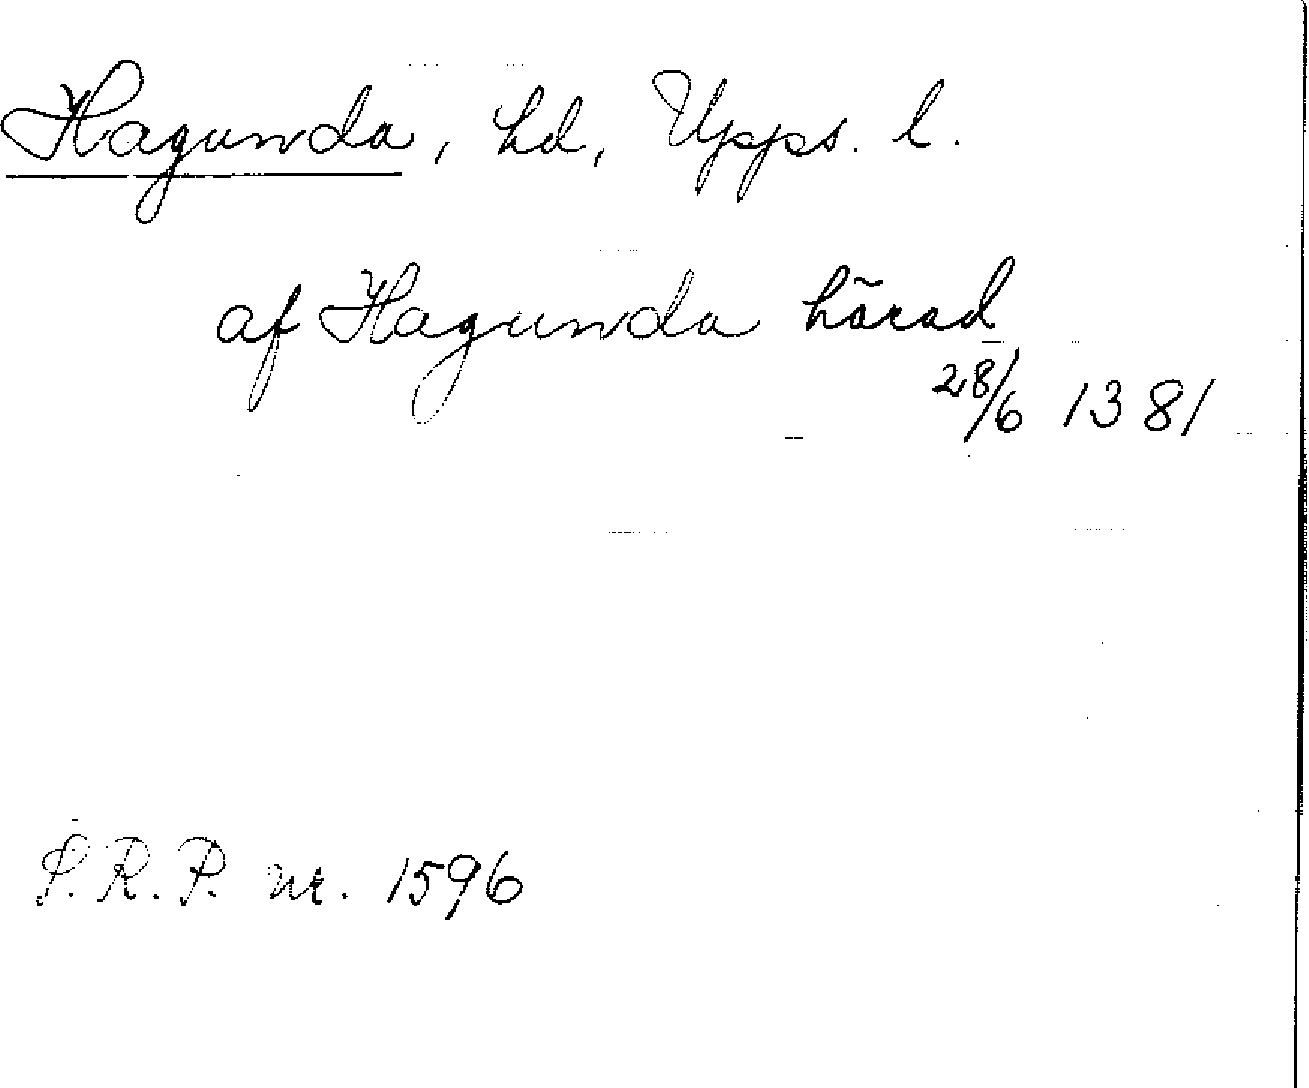 Hagunda, hd, Upps. l.
af Hagunda härad
28/6 1381
S.R.P. nr. 1596